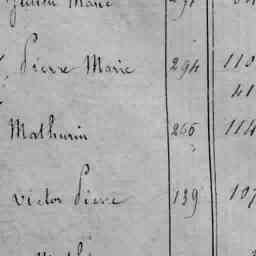 Julien Marie
Pierre Marie 294 110
41
Mathurin 266 114
Victor Pierre 139 107